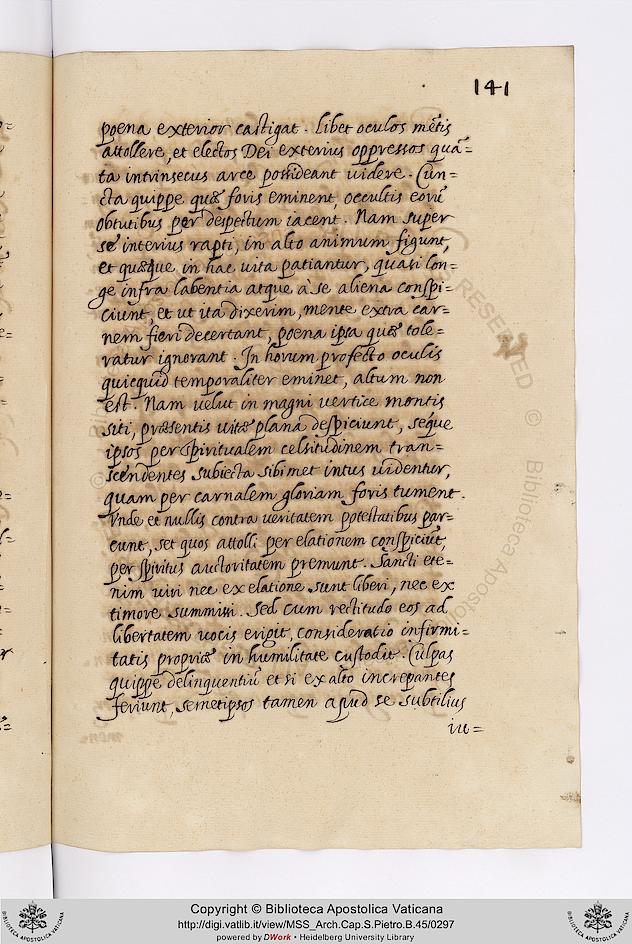 141
poena exterior castigat. libet oculos mẽtis
attollere, et electos Dei exterius oppressos quã=
ta intrinsecus arce possideant videre. Cun=
cta quippe quę foris eminent, occultis eorũ
obtutibus per despectum iacent. Nam super
se interius rapti, in alto animum figunt,
et quęque in hac uita patiantur, quasi lon=
ge infra labentia atque à se aliena conspi=
ciunt, et ut ita dixerim, mente extra car=
nem fieri decertant, poena ipsa quę tole=
ratur ignorant. In horum profecto oculis
quicquid temporaliter eminet, altum non
est. Nam velut in magni vertice montis
siti, pręsentis uitę plana despiciunt, seque
ipsos per spiritualem celsitudinem tran=
scendentes subiecta sibimet intus uidentur,
quam per carnalem gloriam foris tument.
Vnde et nullis contra ueritatem potestatibus par=
cunt, set quos attolli per elationem conspiciũt,
per spiritus auctoritatem premunt. Sancti ete=
nim uiri nec ex elatione sunt liberi, nec ex
timore summissi. Sed cum rectitudo eos ad
libertatem uocis erigit, consideratio infirmi=
tatis proprię in humilitate custodit. Culpas
quippe delinquentiũ et si ex alto increpantes
feriunt, semetipsos tamen apud se subtilius
iu=
RESERVED © Biblioteca Aposto
Copyright © Biblioteca Apostolica Vaticana
http://digi.vatlib.it/view/MSS_Arch.Cap.S.Pietro.B.45/0297
powered by DWork • Heidelberg University Library